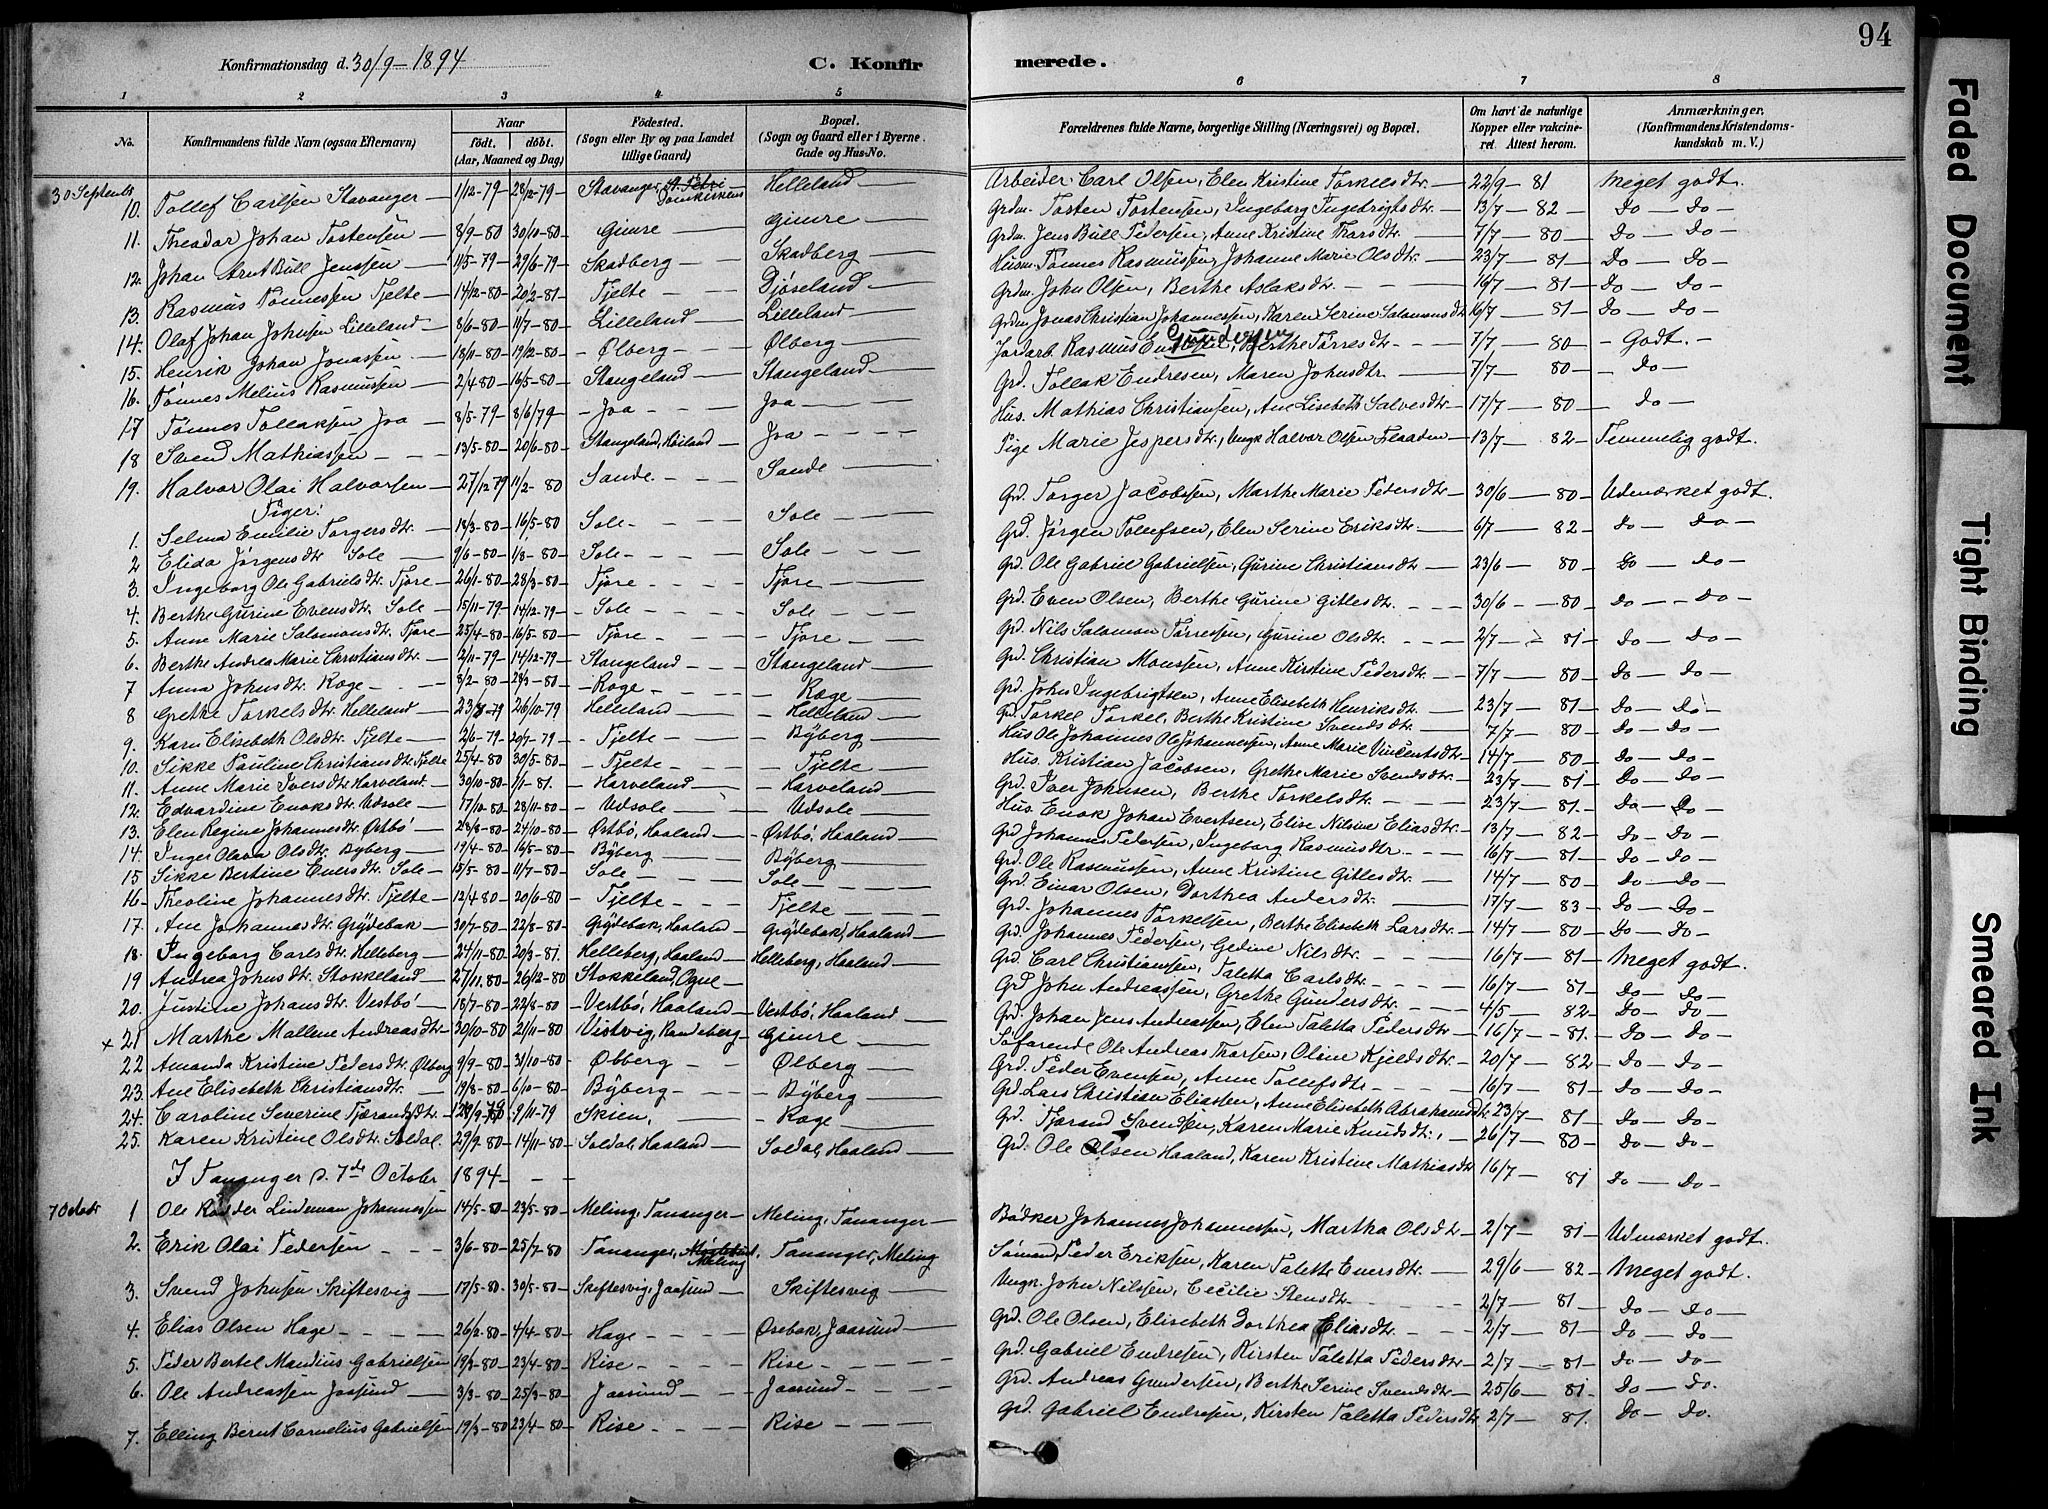 94
Konfirmationsdag d. 30/9-1894
C. Konfirmerede.
1 2 3 4 5 6 7 8
No. Konfirmandens fulde Navn (ogsaa Efternavn) Naar født. døbt. (Aar, Maaned og Dag) Fødested. (Sogn eller By og paa Landet tillige Gaard) Bopæl. (Sogn og Gaard eller i Byerne. Gade og Hus-No. Forældrenes fulde Navne, borgerlige Stilling (Næringsvei) og Bopæl. Om havt de naturlige Kopper eller vakcineret. Attest herom. Anmærkninger. (Konfirmandens Kristendomskundskab m. V.)
30 Septembr
10. Tollef Carlsen Stavanger 1/12-79 28/12-79 Stavanger, St. Petri Domkirkens Helleland Arbeider Carl Olsen, Elen Kristine Torkelsdtr. 22/9-81 Meget godt.
11. Theodor Johan Tostensen 8/9-80 30/10-80 Gimre Gimre Grdm. Tosten Tostensen, Ingeborg Ingebrigtsdtr. 13/7-82 Do Do
12. Johan Arnt Bull Jenssen 11/5-79 29/6-79 Skadberg Skadberg Grdm. Jens Bull Pedersen, Anne Kristine Thorsdtr. 7/7-80 Do Do
13. Rasmus Tønnessen Tjelte 14/12-80 20/2-81 Tjelte Djøseland Husm. Tønnes Rasmussen, Johanne Marie Olsdtr. 23/7-81 Do Do
14. Olaf Johan Johnsen Lilleland 8/6-80 11/7-80 Lilleland Lilleland Grdm. John Olsen, Berthe Aslaksdtr. 16/7-81 Do Do
15. Henrik Johan Jonassen 18/11-80 19/12-80 Ølberg Ølberg Grdm Jonas Christian Johannessen, Karen Serine Salomonsdtr 16/7-81 Do Do
16. Tønnes Melius Rasmussen 2/4 80 16/5-80 Stangeland Stangeland Jordarb. Rasmus Gundersen, Berthe Tørresdtr. 7/7-80 Godt.
17 Tønnes Tollaksen Joa 8/5-79 8/6/79 Joa Joa Grd. Tollak Endresen, Maren Johnsdtr. 7/7-80 Do
18 Svend Mathiassen 13/5-80 20/6-80 Stangeland, Høiland Joa Hus. Mathias Christiansen, Ane Lisebeth Salvesdtr 17/7-80 Do
19. Halvor Olai Halvorsen 27/12 79 11/2-80 Sande Sande Pige Marie Jespersdtr, Ungk Halvor Olsen Flaaden 13/7-82 Temmelig godt.
Piger:
1. Selma Emilie Torgersdtr. 18/3-80 16/5-80 Sole Sole Grd. Torger Jacobsen, Marthe Marie Pedersdtr 30/6-80 Udmærket godt.
2 Elida Jørgensdtr Sole 9/6-80 1/8-80 Sole Sole Grd. Jørgen Tollefsen, Elen Serine Eriksdtr 6/7-82 Do Do
3. Ingeborg Ole Gabrielsdtr. Tjore 26/1-80 28/3-80 Tjore Tjore Grd. Ole Gabriel Gabrielsen, Gurine Christiansdtr 23/6-80 Do Do
4. Berthe Gurine Evensdtr. Sole 15/11-79 14/12-79 Sole Sole Grd. Even Olsen, Berthe Gurine Gitlesdtr. 30/6-80 Do Do
5. Anne Marie Salomonsdtr. Tjore 25/4-80 16/5-80 Tjore Tjore Grd. Nils Salomon Tørressen, Gurine Olsdtr. 2/7-81 Do Do
6. Berthe Andrea Marie Christiansdtr. 2/11-79 14/12-79 Stangeland Stangeland Grd. Christian Monssen, Anne Kirstine Pedersdtr 7/7-80 Do Do
7 Anna Johnsdtr. Roge 8/2-80 28/3-80 Roge Roge Grd. John Ingebrigtsen, Anne Elisebeth Henriksdtr. 23/7-81 Do Do
8 Grethe Torkelsdtr. Helleland 23/8-79 26/10-79 Helleland Helleland Grd. Torkel Torkel, Berthe Kristine Svendsdtr. 7/7-80 Do Do
9. Karn Elisebeth Olsdtr. Tjelte 2/6-79 20/7-79 Tjelte Byberg Hus Ole Johannes Ole Johannessen, Anne Marie Vincentsdtr. 14/7-80 Do Do
10. Sikke Pauline Christiansdtr Tjelte 25/4 80 30/5-80 Tjelte Tjelte Hus. Kristian Jacobsen, Grethe Marie Svendsdtr. 23/7-81 Do Do
11. Anne Marie Iversdtr. Harveland 30/10-80 1/1-81. Harveland Harveland Grd. Iver Johnsen, Berthe Torkelsdtr. 23/7-81. Do Do
12. Edvardine Enoksdtr. Udsole 17/10-80 28/11-80 Udsole Udsole Hus. Enok Johan Evertsen, Elise Nilsine Eliasdtr. 13/7-82 Do Do
13. Elen Regine Johannesdtr. Østbø 28/8-80 24/10-80 Østbø, Haaland Østbø, Haaland Grd Johannes Pedersen, Ingeborg Rasmusdtr. 16/7-81 Do Do
14. Inger Olava Olsdtr. Byberg 19/4-80 16/5-80 Byberg Byberg Grd. Ole Rasmussen, Anne Kristine Gitlesdtr. 14/7-80 Do Do
15 Sikke Bertine Einersdtr Sole 15/5-80 11/7-80 Sole Sole Grd. Einar Olsen, Dorthea Andersdtr. 17/7-83 Do Do
16- Theoline Johannesdtr. Tjelte 12/4 80 20/6-80 Tjelte Tjelte Grd. Johannes Torkelsen, Berthe Elisebeth Larsdtr. 14/7-80 Do Do
17. Ane Johannesdtr. Grydebak 30/7-80 22/8-80 Grydebak, Haaland Grydebak, Haaland Grd. Johannes Pedersen, Gedine Nilsdtr. 16/7-81 Meget godt.
18. Ingeborg Carlsdtr. Helleberg 24/11-80 20/3-81. Helleberg, Haaland Helleberg, Haaland Grd. Carl Christianssen, Taletta Carlsdtr. 16/7-81 Do Do
19 Andrea Johnsdtr. Stokkeland 27/11.80 26/12-80 Stokkeland, Ogne Grd John Andreassen, Grethe Gundersdtr. 4/5-82 Do Do
20. Justine Johansdtr. Vestbø 18/7-80 22/8-80 Vestbø, Haaland Vestbø, Haaland Grd. Johan Jens Andreassen, Elen Taletta Pedersdtr. 16/7-81. Do Do
x 21 Marthe Mallene Andreasdtr 30/10-80 21/11-80 Vistvig, Randeberg Gimre Søfarende Ole Andreas Thorsen, Oline Kjeldsdtr. 20/7-82 Do Do
22 Amanda Kristine Pedersdtr. Ølberg 9/9-80 31/10-80 Ølberg Ølberg Grd. Peder Evensen, Anne Tollefsdtr 16/7-81 Do Do
23. Ane Elisebeth Christiansdtr. 19/8-80 6/10-80 Byberg Byberg Grd Lars Christian Eliassen, Anne Elisebeth Abrahamsdtr 23/7-81 Do Do
24. Caroline Severine Tjærandsdtr. 9/11-79 Skien, Roge Grd. Tjærand Svensen, Karen Marie Knudsdtr. 26/7-80 Do Do
25. Karen Kristine Olsdtr. Soldal. 29/9-80 14/11-80 Soldal, Haaland Soldal, Haaland Grd. Ole Olsen Haaland, Karen Kristine Mathiasdtr 16/7-81 Do Do
I Tananger d. 7de October 1894
7 Octobr 1 Ole Lindeman Johannessen 14/5-80 23/5-80 Meling, Tananger Meling, Tananger Bødker Johannes Johannessen, Martha Olsdtr 2/7-81 Udmærket godt.
2. Erik Olai Pedersen 3/6-80 25/7-80 Tananger, Meling Tananger, Meling Sømand, Peder Eriksen, Karen Talette Eversdtr. 29/6-82 Meget godt.
3. Svend Johnsen Skiftesvig 17/5-80 30/5-80 Skiftesvig, Jaasund Skiftesvig Ungk. John Nilssen, Cecilie Stensdtr. 2/7-81 Do Do
4. Elias Olsen Hage 26/2-80 4/4-80 Hage Øsebak, Jaasund Grd. Ole Olsen, Elisebeth Dorthea Eliasdtr. 2/7-81 Do Do
5. Peder Bertel Mandius Gabrielsen 19/3-80 23/4-80 Rise Rise Grd. Gabriel Endresen, Kirsten Taletta Pedersdtr 2/7-81 Do Do
6. Ole Andreassen Jaasund 3/3-80 25/3-80 Jaasund Jaasund Grd. Andreas Gundersen, Berthe Serine Svendsdtr. 25/6-81 Do Do.
7. Elling Bernt Cornelius Gabrielsen 19/3-80 23/4-80 Rise Rise Grd. Gabriel Endresen, Kirsten Taletta Pedersdtr 2/7-81. Do Do.
Faded Document
Tight Binding
Smeared Ink